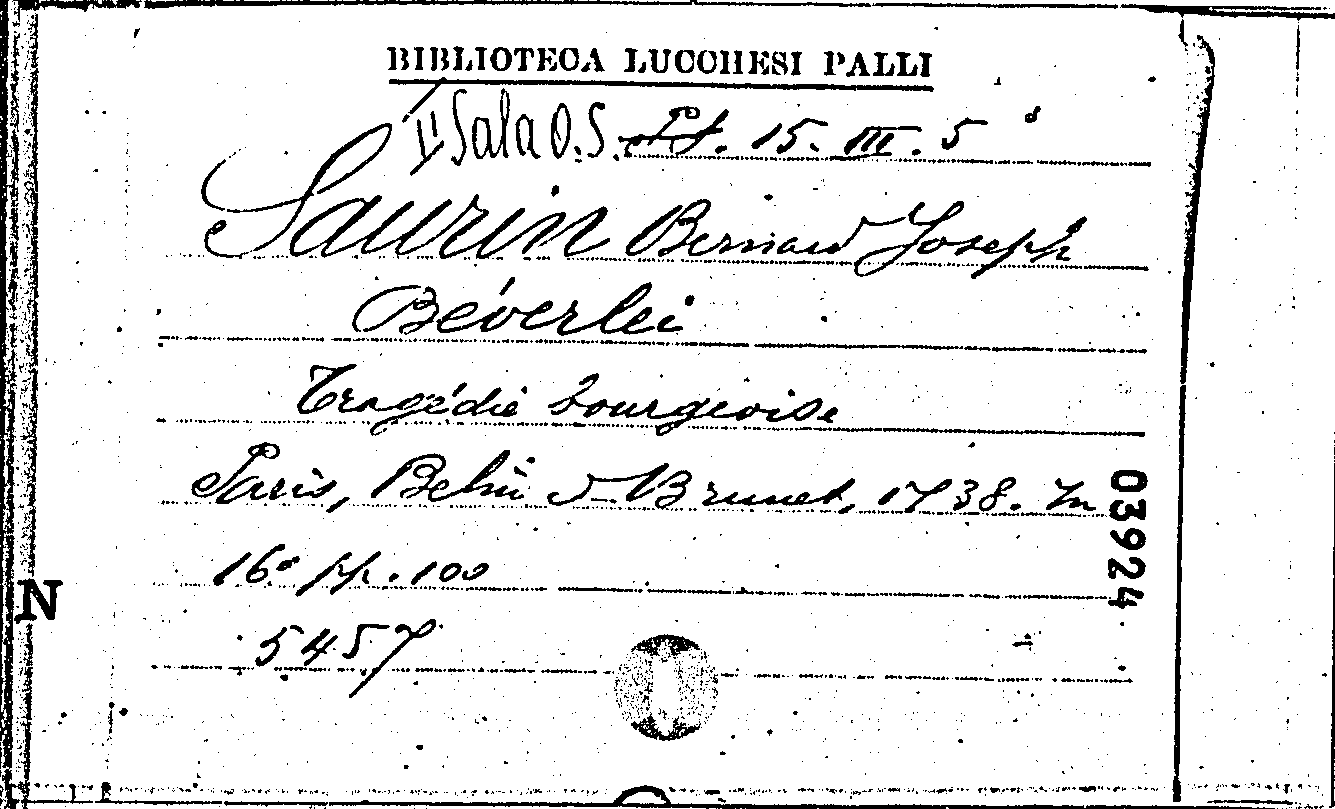 BIBLIOTECA LUCCHESI PALLI
II Sala O.S. Pt. 15. III. 5
Saurin Bernard Joseph
Béverlei
Tragédie bourgeoise
Paris, Belin & Brunet, 1738. In
16° pp. 100
5457
03924
N